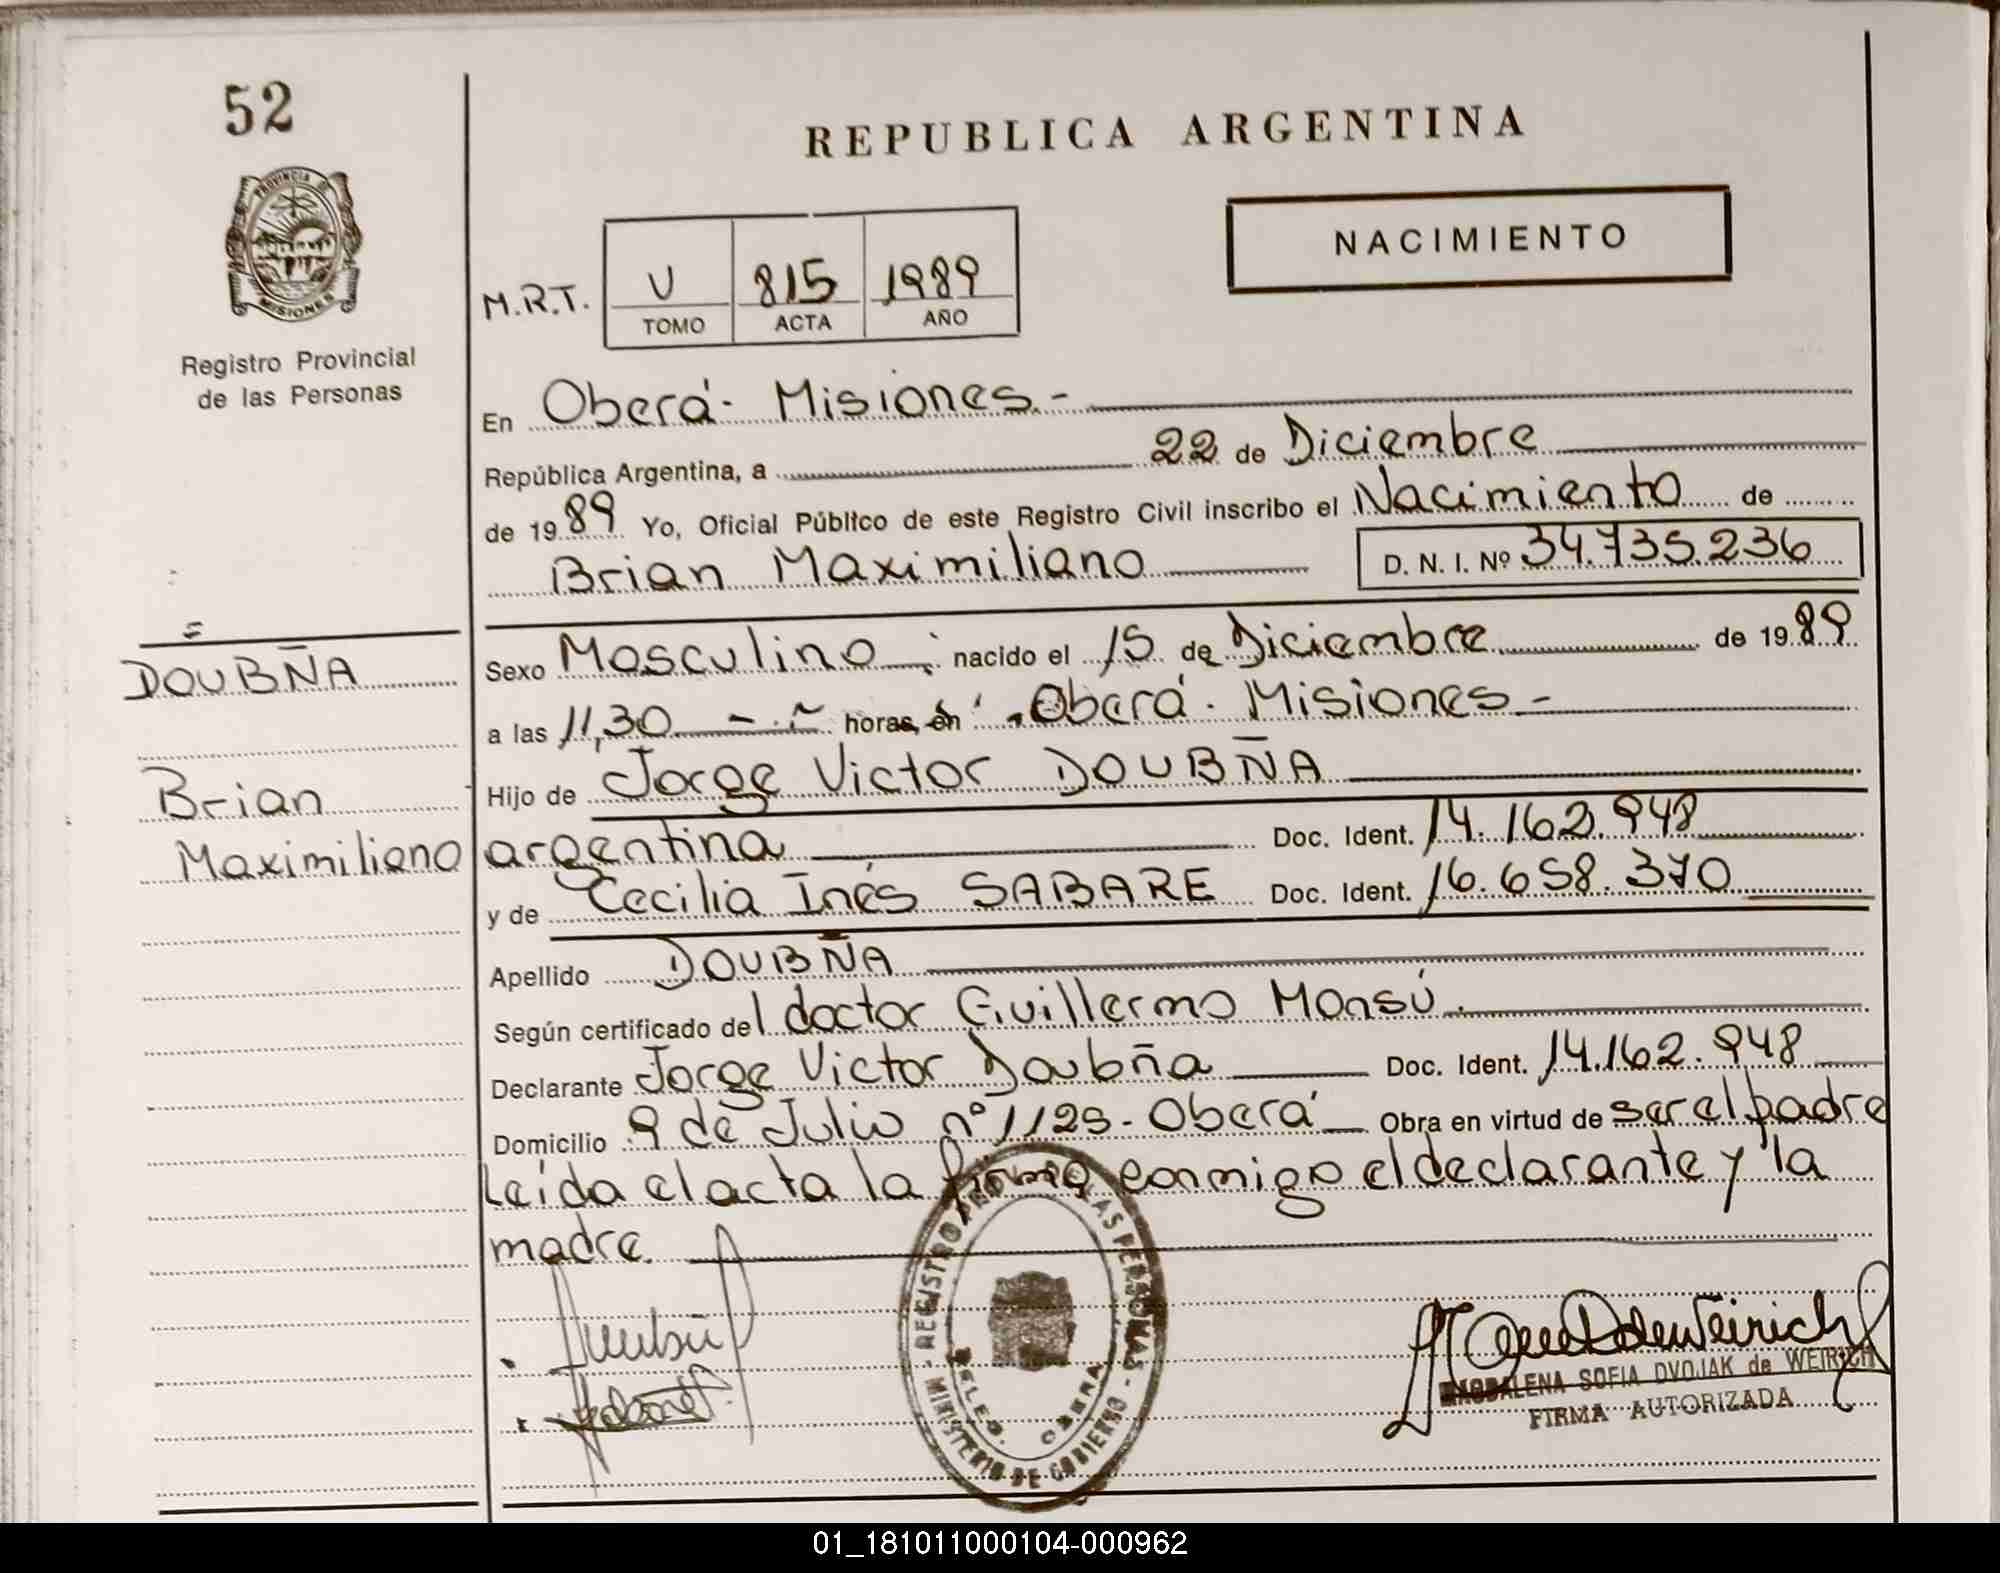 52
REPUBLICA ARGENTINA
PROVINCIA DE
MISIONES
Registro Provincial
de las Personas
NACIMIENTO
M.R.T.
U 815 1989
TOMO ACTA AÑO
En Oberá - Misiones.-
República Argentina, a 22 de Diciembre
de 1989 Yo, Oficial Público de este Registro Civil inscribo el Nacimiento de
Brian Maximiliano D. N. I. Nº 34.735.236
DOUBÑA
Brian
Maximiliano
Sexo Masculino ; nacido el 15 de Diciembre de 1989
a las 11,30 horas, en Oberá - Misiones -
Hijo de Jorge Victor DOUBÑA
argentina Doc. Ident. 14.162.948
y de Cecilia Inés SABARE Doc. Ident. 16.658.370
Apellido DOUBÑA
Según certificado del doctor Guillermo Monsú.
Declarante Jorge Victor Doubña Doc. Ident. 14.162.948
Domicilio 9 de Julio nº 1125 - Oberá Obra en virtud de ser el padre
Leída el acta la firma conmigo el declarante y la
madre.
REGISTRO PROV. DE LAS PERSONAS
MINISTERIO DE GOBIERNO
DELEG. OBERA
MAGDALENA SOFIA DVOJAK de WEIRICH
FIRMA AUTORIZADA
01_181011000104-000962